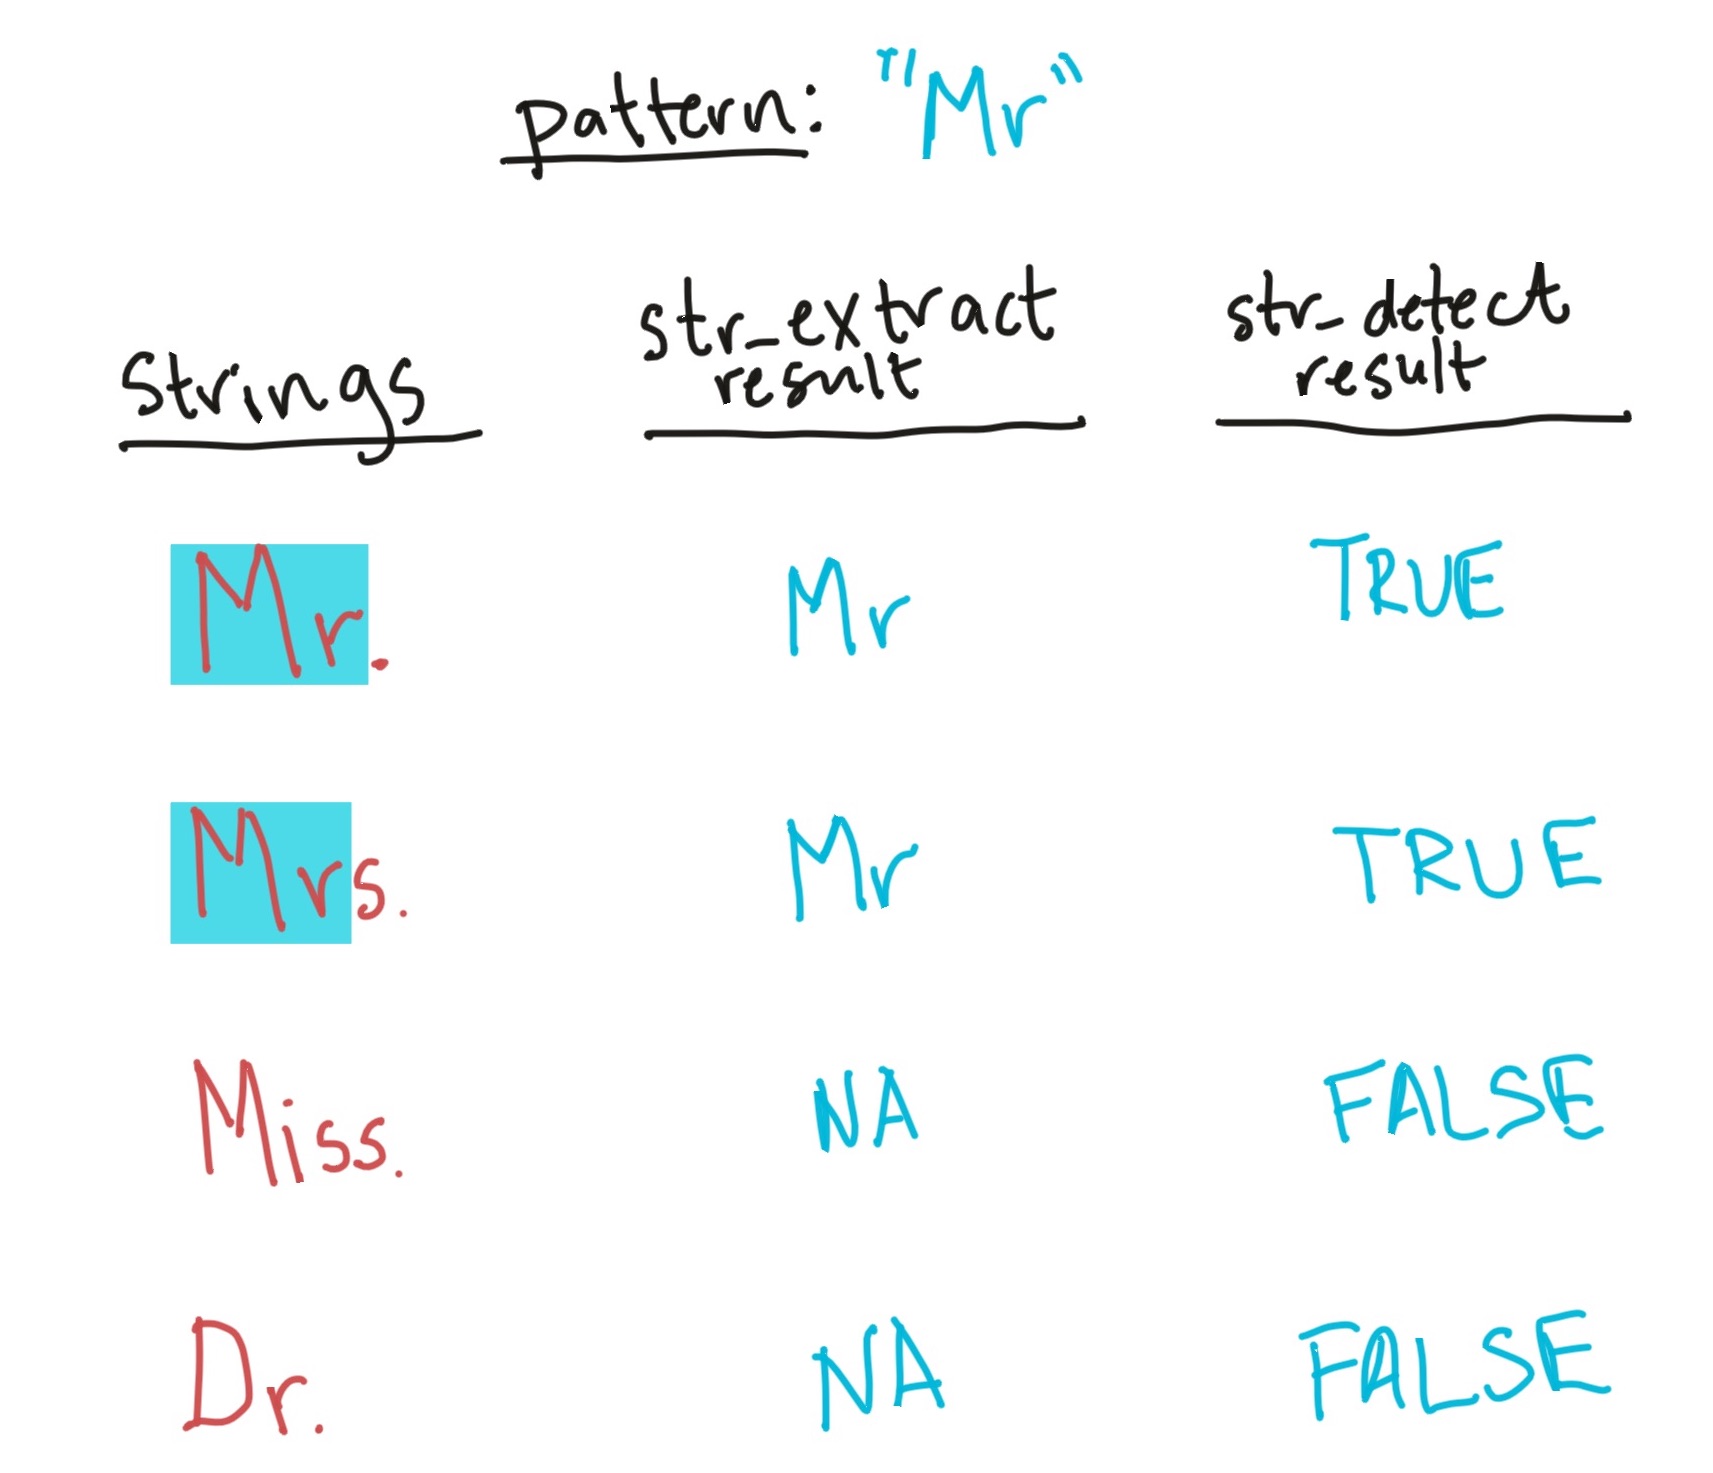 pattern: "Mr"
strings str_extract result str_detect result
Mr. Mr TRUE
Mrs. Mr TRUE
Miss. NA FALSE
Dr. NA FALSE